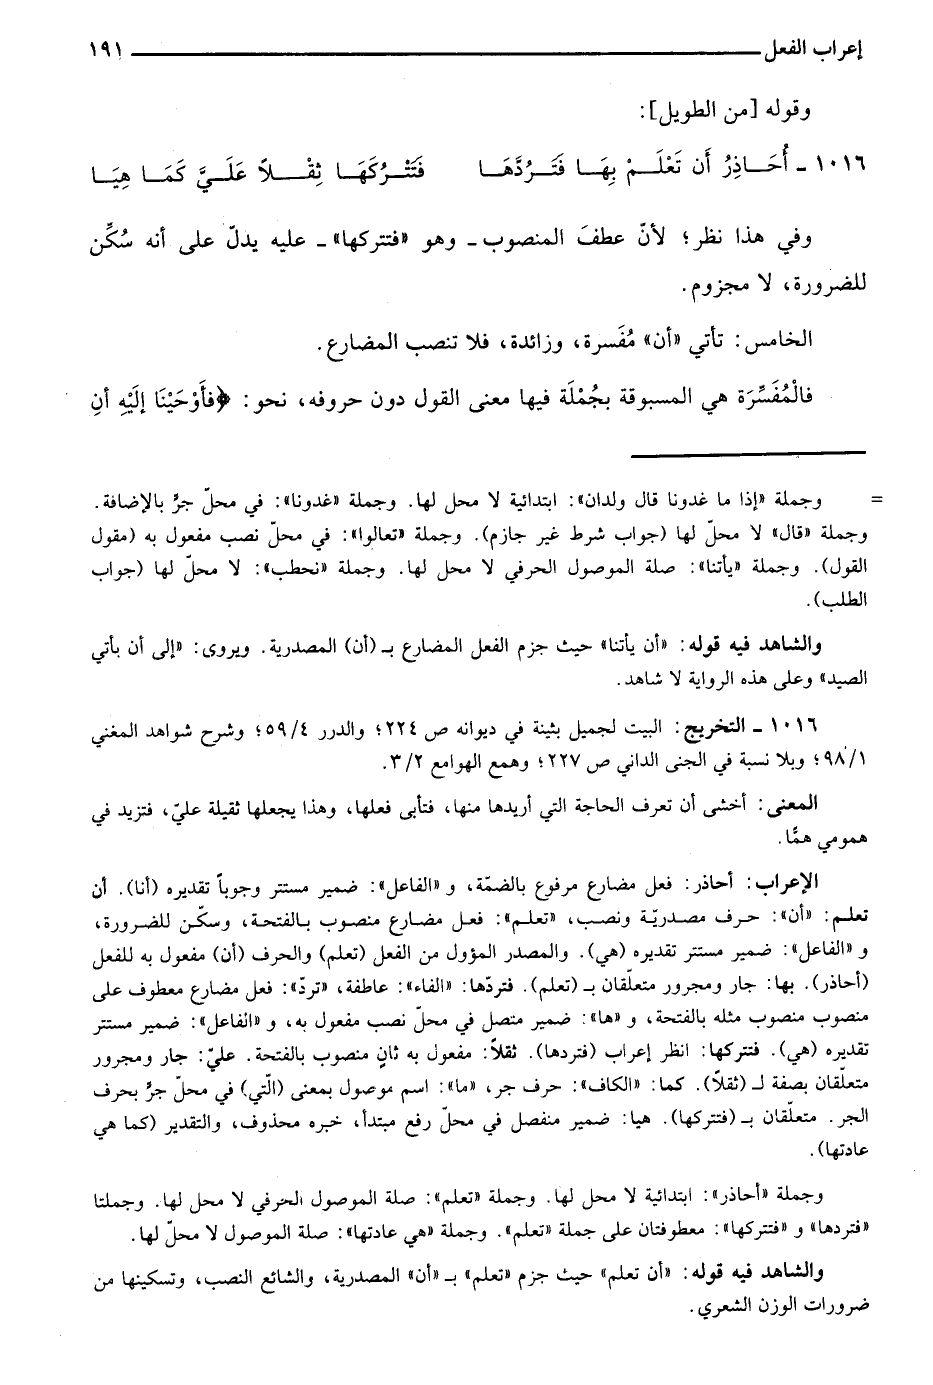 إعراب الفعل ١٩١
وقوله [من الطويل]:
١٠١٦ ـ أُحَاذِرُ أَن تَعْلَمْ بِهَا فَتَرُدَّهَا فَتَتْرُكَهَا ثِقْلاً عَلَيَّ كَمَا هِيَا
وفي هذا نظر؛ لأنّ عطفَ المنصوب ـ وهو «فتتركها» ـ عليه يدلّ على أنه سُكِّن
للضرورة، لا مجزوم.
الخامس: تأتي «أن» مُفَسرة، وزائدة، فلا تنصب المضارع.
فالْمُفَسِّرَة هي المسبوقة بجُمْلَة فيها معنى القول دون حروفه، نحو: ﴿فأَوْحَيْنَا إلَيْهِ أنِ
= وجملة «إذا ما غدونا قال ولدان»: ابتدائية لا محل لها. وجملة «غدونا»: في محلّ جرٌّ بالإضافة.
وجملة «قال» لا محلّ لها (جواب شرط غير جازم). وجملة «تعالوا»: في محلّ نصب مفعول به (مقول
القول). وجملة «يأتنا»: صلة الموصول الحرفي لا محل لها. وجملة «نحطب»: لا محلّ لها (جواب
الطلب).
والشاهد فيه قوله: «أن يأتنا» حيث جزم الفعل المضارع بـ (أن) المصدرية. ويروى: «إلى أن يأتي
الصيد» وعلى هذه الرواية لا شاهد.
١٠١٦ ـ التخريج: البيت لجميل بثينة في ديوانه ص ٢٢٤؛ والدرر ٥٩/٤؛ وشرح شواهد المغني
٩٨/١؛ وبلا نسبة في الجنى الداني ص ٢٢٧؛ وهمع الهوامع ٣/٢.
المعنى: أخشى أن تعرف الحاجة التي أريدها منها، فتأبى فعلها، وهذا يجعلها ثقيلة عليّ، فتزيد في
همومي همًّا.
الإعراب: أحاذر: فعل مضارع مرفوع بالضمّة، و «الفاعل»: ضمير مستتر وجوباً تقديره (أنا). أن
تعلم: «أن»: حرف مصدريّة ونصب، «تعلم»: فعل مضارع منصوب بالفتحة، وسكّن للضرورة،
و «الفاعل»: ضمير مستتر تقديره (هي). والمصدر المؤول من الفعل (تعلم) والحرف (أن) مفعول به للفعل
(أحاذر). بها: جار ومجرور متعلّقان بـ (تعلم). فتردّها: «الفاء»: عاطفة، «تردّ»: فعل مضارع معطوف على
منصوب منصوب مثله بالفتحة، و «ها»: ضمير متصل في محلّ نصب مفعول به، و «الفاعل»: ضمير مستتر
تقديره (هي). فتتركها: انظر إعراب (فتردها). ثقلاً: مفعول به ثانٍ منصوب بالفتحة. عليّ: جار ومجرور
متعلّقان بصفة لـ (ثقلاً). كما: «الكاف»: حرف جر، «ما»: اسم موصول بمعنى (الّتي) في محلّ جرٌّ بحرف
الجر. متعلّقان بـ (فتتركها). هيا: ضمير منفصل في محلّ رفع مبتدأ، خبره محذوف، والتقدير (كما هي
عادتها).
وجملة «أحاذر»: ابتدائية لا محل لها. وجملة «تعلم»: صلة الموصول الحرفي لا محل لها. وجملتا
«فتردها» و «فتتركها»: معطوفتان على جملة «تعلم». وجملة «هي عادتها»: صلة الموصول لا محلّ لها.
والشاهد فيه قوله: «أن تعلم» حيث جزم «تعلم» بـ «أن» المصدرية، والشائع النصب، وتسكينها من
ضرورات الوزن الشعري.